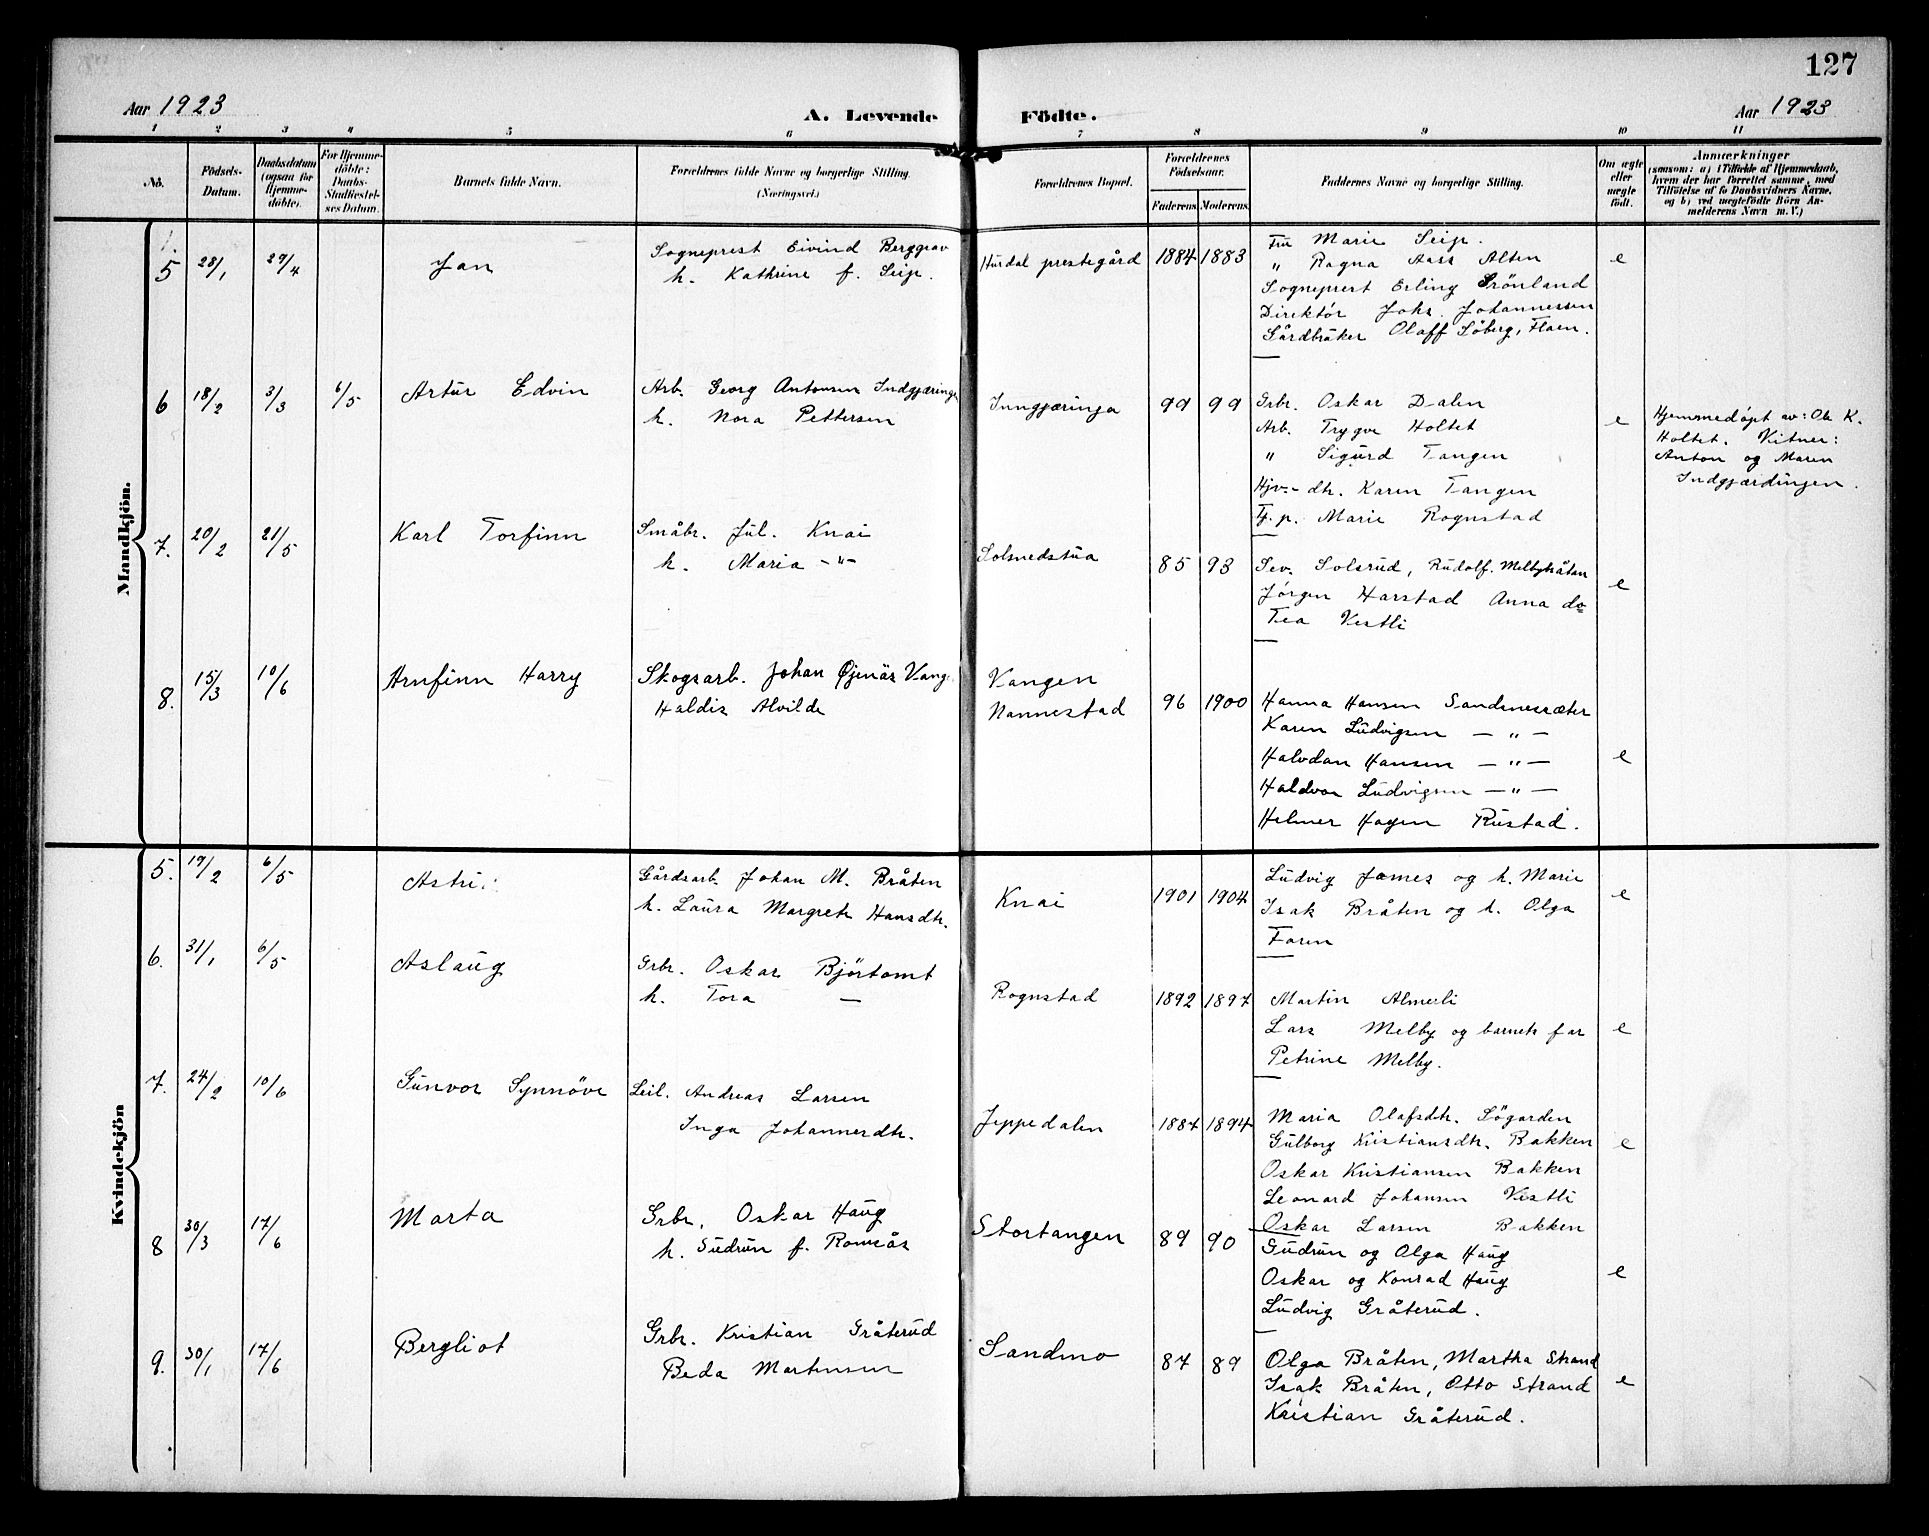 127
Aar 1923
A. Levende Födte.
Aar 1923
1 2 3 4 5 6 7 8 9 10 11
No.
Födsels-
Datum.
Daabsdatum
(ogsaa for
Hjemme-
döbte).
For Hjemme-
döbte:
Daabs-
Stadfæstel-
ses Datum.
Barnets fulde Navn.
Forældrenes fulde Navne og borgerlige Stilling.
(Næringsvei.)
Forældrenes Bopæl.
Forældrenes
Födselsaar.
Faderens. Moderens.
Faddernes Navne og borgerlige Stilling.
Om ægte
eller
uægte
født.
Anmærkninger
(saasom: a) i Tilfælde af Hjemmedaab,
hvem der har forrettet samme, med
Tilföielse af to Daabsvidners Navne,
og b) ved uægtefödte Börn An-
melderens Navn m. V.)
Mandkjön.
5 28/1 29/4 Jan
Sogneprest Eivind Berggrav
h. Kathrine f. Seip.
Hurdal prestegård 1884 1883
Fru Marie Seip.
" Ragna Aass Alten
Sogneprest Erling Grönland
Direktör Johs. Johannessen
Gårdbruker Olaff Söberg, Flaen.
e
6 18/2 3/3 6/5 Artur Edvin
Arb. Georg Antonsen Indgjæringe
h. Nora Pettersen
Inngjæringa 99 99
Grbr. Oskar Dalen
Arb. Trygve Holtet
" Sigurd Tangen
Hjv.- dtr. Karen Tangen
Tj. p. Marie Rognstad
e
Hjemmedöpt av: Ole K.
Holtet. Vitner:
Anton og Maren
Indgjærdingen.
7. 20/2 21/5 Karl Torfinn
Småbr. Jul. Knai
h. Maria - " -
Solsnedstua 85 93
Sev. Solsrud, Rudolf. Melbybråtan
Jörgen Harstad Anna do
Tea Vestli
e
8. 15/3 10/6 Arnfinn Harry
Skogsarb. Johan Øjenäs Vang
Haldis Alvilde
Vangen
Nannestad 96 1900
Hanna Hansen Sandsnessæter
Karen Ludvigsen - " -
Halvdan Hansen - " -
Haldvor Ludvigsen - " -
Helmer Hagen Rustad.
e
Kvindekjön
5. 19/2 6/5 Astri
Gårdsarb. Johan M. Bråten
h. Laura Margrete Hansdtr.
Knai 1901 1904
Ludvig James og h. Marie
Isak Bråten og h. Olga
Faren
e
6. 31/1 6/5 Aslaug
Grbr. Oskar Björtomt
h. Tora -
Rognstad 1892 1897
Martin Almeli
Lars Melby og barnets far
Petrine Melby.
e
7. 24/2 10/6 Gunvor Synnöve
Leil. Andreas Larsen
Inga Johannesdtr.
Jeppedalen 1887 1894
Maria Olafsdtr. Sögarden
Gulborg Kristiansdtr. Bakken
Oskar Kristiansen Bakken
Leonard Johansen Vestli
Oskar Larsen Bakken
e
8 30/3 17/6 Marta
Grbr. Oskar Haug
h. Gudrun f. Romsås
Stortangen 89 90
Gudrun og Olga Haug
Oskar og Konrad Haug
Ludvig Gråterud.
e
9. 30/1 17/6 Bergliot
Grbr. Kristian Gråterud
Beda Martensen
Sandmo 87 89
Olga Bråten, Martha Strand
Isak Bråten, Otto Strand
Kristian Gråterud.
e